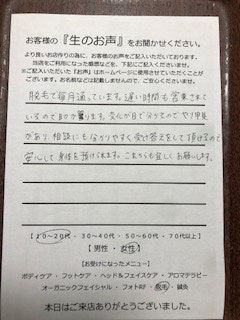 お客様の『生のお声』をお聞かせください。
より良いお店作りの為に、お客様のお声を必要としております。
当店をご利用になった感想などを、下記にご記入くださいませ。
※ご記入いただいた『お声』はホームページに使用させていただくことが
ございます。お名前などは記載しませんので、ご安心くださいませ。
脱毛で毎月通っています。遅い時間も営業されて
いるので助かります。変化が目で分かるので やり甲斐
があり、相談にも分かりやすく受け答えをして頂けるので
安心して身体を預けられます。これからも宜しくお願いします。
(10〜20代・30〜40代・50〜60代・70代以上)
【男性・女性】
【お受けになったメニュー】
ボディケア・フットケア・ヘッド＆フェイスケア・アロマテラピー
オーガニックフェイシャル・フォトRF・脱毛・鍼灸
本日はご来店ありがとうございました。